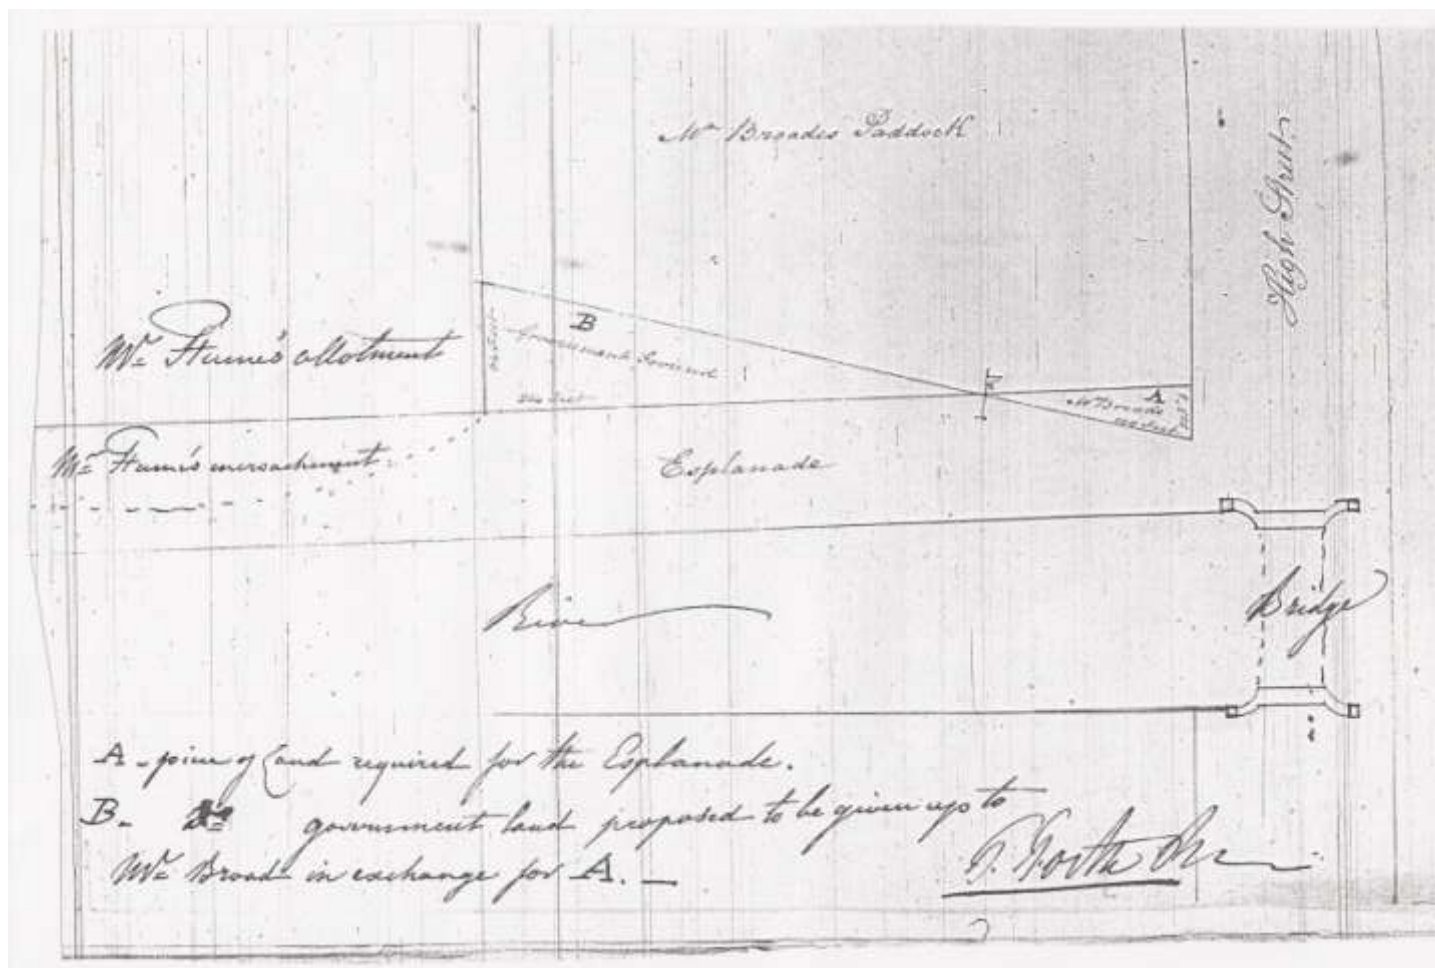 Mr Broades Paddock
High Street
B
Government Ground
Mr Hume's allotment
A
Mr Broads
Mr Hume's encroachment
Esplanade
River
Bridge
A - piece of land required for the Esplanade.
B. Do government land proposed to be given up to
Mr Broad in exchange for A. —